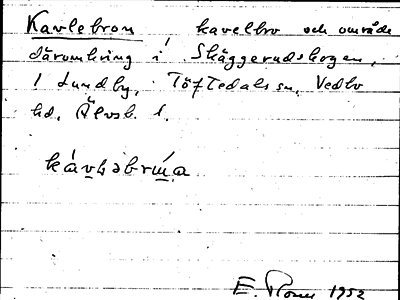 Kavlebron, kavelbro och område
däromkring i Skäggerudskogen,
1 Lundby, Töftedals sn, Vedbo
hd, Älvsb. l.
kávləbrṳ́a
E. 1952